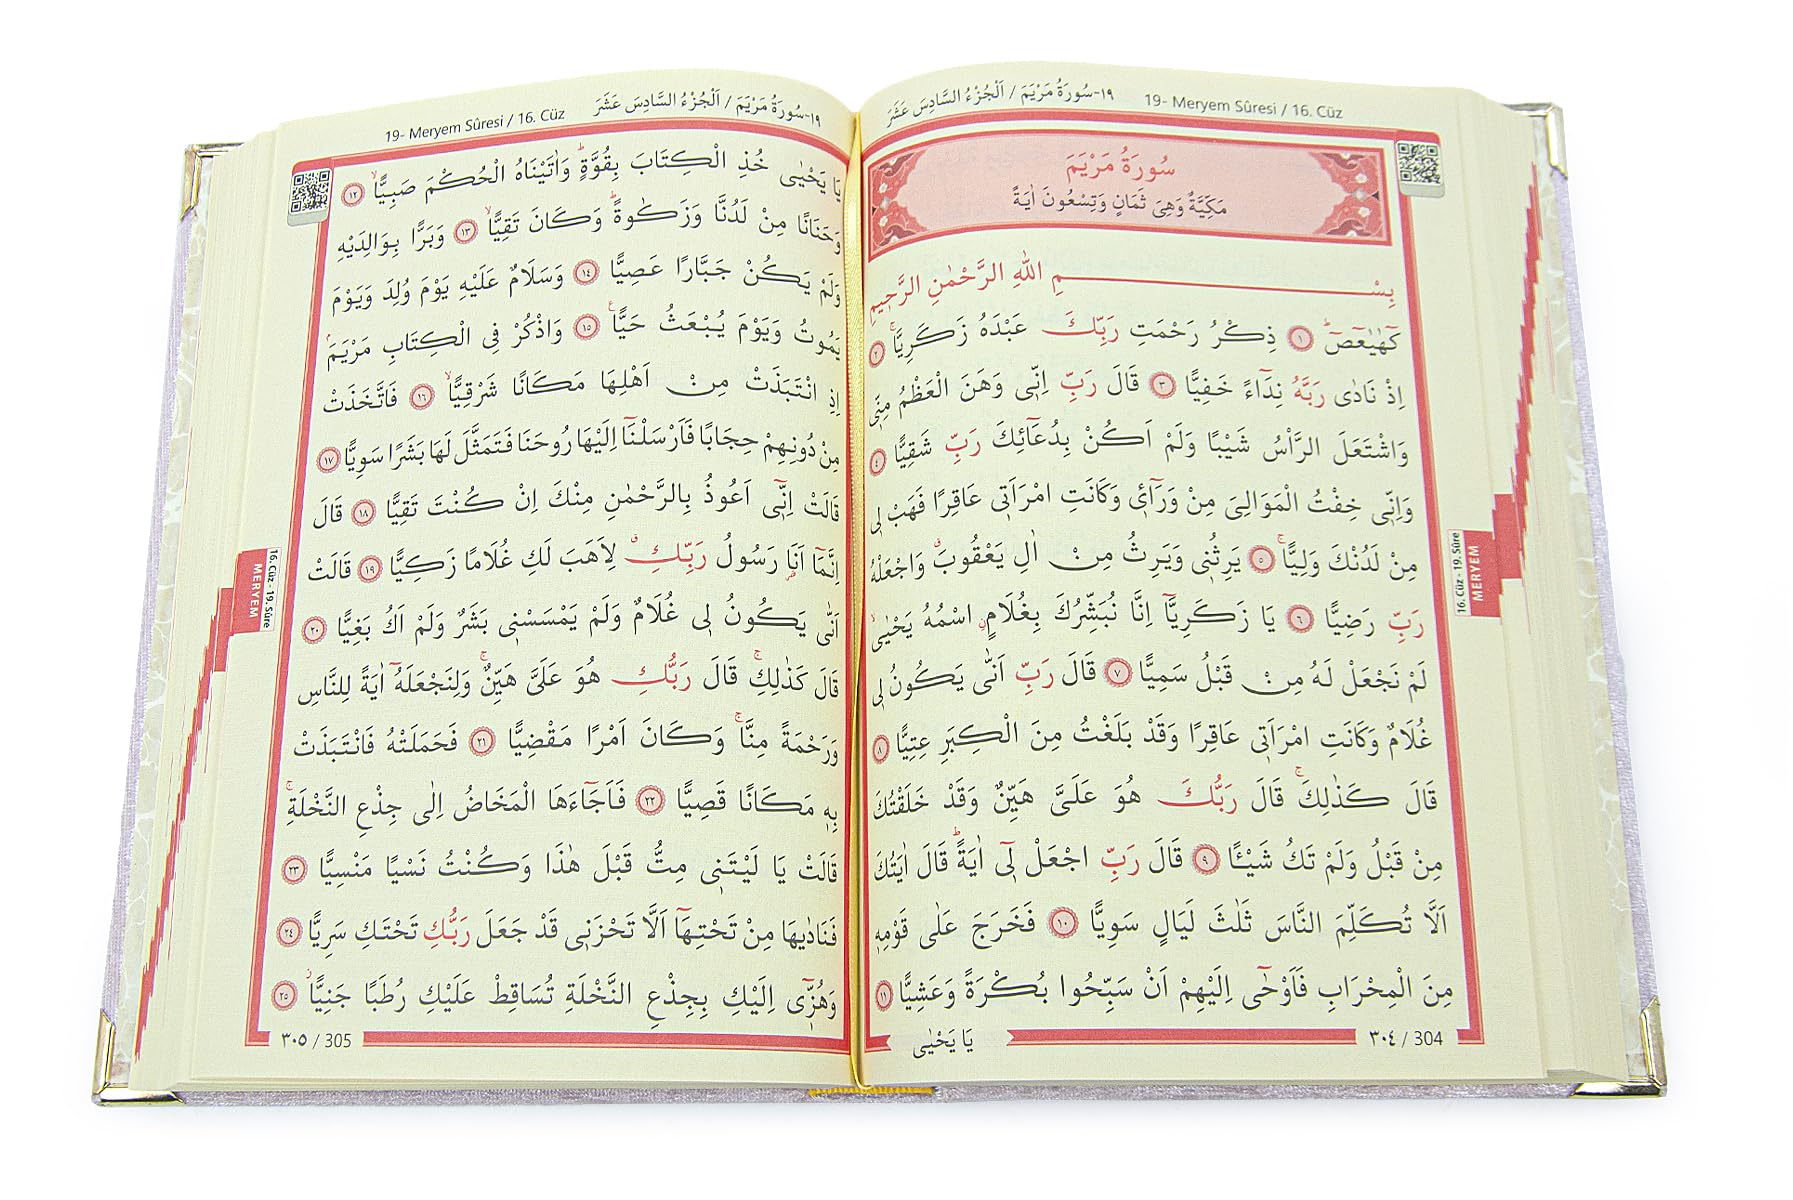 ١٩-سُورَةُ مَرْيَمَ / اَلْجُزْءُ السَّادِسَ عَشَرَ 19- Meryem Sûresi / 16. Cüz
سُورَةُ مَرْيَمَ
مَكِّيَّةٌ وَهِىَ ثَمَانٍ وَتِسْعُونَ اٰيَةً
بِسْمِ اللّٰهِ الرَّحْمٰنِ الرَّحٖيمِ
كٓهٰيٰعٓصٓۜ ﴿١﴾ ذِكْرُ رَحْمَتِ رَبِّكَ عَبْدَهُ زَكَرِيَّاۚ ﴿٢﴾
اِذْ نَادٰى رَبَّهُ نِدَٓاءً خَفِيًّا ﴿٣﴾ قَالَ رَبِّ اِنّٖى وَهَنَ الْعَظْمُ مِنّٖى
وَاشْتَعَلَ الرَّاْسُ شَيْبًا وَلَمْ اَكُنْ بِدُعَٓائِكَ رَبِّ شَقِيًّا ﴿٤﴾
وَاِنّٖى خِفْتُ الْمَوَالِىَ مِنْ وَرَٓاءٖى وَكَانَتِ امْرَاَتٖى عَاقِرًا فَهَبْ لٖى
مِنْ لَدُنْكَ وَلِيًّاۙ ﴿٥﴾ يَرِثُنٖى وَيَرِثُ مِنْ اٰلِ يَعْقُوبَۗ وَاجْعَلْهُ
رَبِّ رَضِيًّا ﴿٦﴾ يَا زَكَرِيَّٓا اِنَّا نُبَشِّرُكَ بِغُلَامٍۨ اسْمُهُ يَحْيٰىۙ
لَمْ نَجْعَلْ لَهُ مِنْ قَبْلُ سَمِيًّا ﴿٧﴾ قَالَ رَبِّ اَنّٰى يَكُونُ لٖى
غُلَامٌ وَكَانَتِ امْرَاَتٖى عَاقِرًا وَقَدْ بَلَغْتُ مِنَ الْكِبَرِ عِتِيًّا ﴿٨﴾
قَالَ كَذٰلِكَۚ قَالَ رَبُّكَ هُوَ عَلَىَّ هَيِّنٌ وَقَدْ خَلَقْتُكَ
مِنْ قَبْلُ وَلَمْ تَكُ شَيْـًٔا ﴿٩﴾ قَالَ رَبِّ اجْعَلْ لٖٓى اٰيَةًۜ قَالَ اٰيَتُكَ
اَلَّا تُكَلِّمَ النَّاسَ ثَلٰثَ لَيَالٍ سَوِيًّا ﴿١٠﴾ فَخَرَجَ عَلٰى قَوْمِهٖ
مِنَ الْمِحْرَابِ فَاَوْحٰٓى اِلَيْهِمْ اَنْ سَبِّحُوا بُكْرَةً وَعَشِيًّا ﴿١١﴾
يَا يَحْيٰى
٣٠٤ / 304
16. Cüz - 19. Sûre
MERYEM
19- Meryem Sûresi / 16. Cüz ١٩-سُورَةُ مَرْيَمَ / اَلْجُزْءُ السَّادِسَ عَشَرَ
يَا يَحْيٰى خُذِ الْكِتَابَ بِقُوَّةٍۜ وَاٰتَيْنَاهُ الْحُكْمَ صَبِيًّاۙ ﴿١٢﴾
وَحَنَانًا مِنْ لَدُنَّا وَزَكٰوةًۜ وَكَانَ تَقِيًّاۙ ﴿١٣﴾ وَبَرًّا بِوَالِدَيْهِ
وَلَمْ يَكُنْ جَبَّارًا عَصِيًّا ﴿١٤﴾ وَسَلَامٌ عَلَيْهِ يَوْمَ وُلِدَ وَيَوْمَ
يَمُوتُ وَيَوْمَ يُبْعَثُ حَيًّاۚ ﴿١٥﴾ وَاذْكُرْ فِى الْكِتَابِ مَرْيَمَۢ
اِذِ انْتَبَذَتْ مِنْ اَهْلِهَا مَكَانًا شَرْقِيًّاۙ ﴿١٦﴾ فَاتَّخَذَتْ
مِنْ دُونِهِمْ حِجَابًا فَاَرْسَلْنَٓا اِلَيْهَا رُوحَنَا فَتَمَثَّلَ لَهَا بَشَرًا سَوِيًّا ﴿١٧﴾
قَالَتْ اِنّٖٓى اَعُوذُ بِالرَّحْمٰنِ مِنْكَ اِنْ كُنْتَ تَقِيًّا ﴿١٨﴾ قَالَ
اِنَّمَٓا اَنَا۬ رَسُولُ رَبِّكِۗ لِاَهَبَ لَكِ غُلَامًا زَكِيًّا ﴿١٩﴾ قَالَتْ
اَنّٰى يَكُونُ لٖى غُلَامٌ وَلَمْ يَمْسَسْنٖى بَشَرٌ وَلَمْ اَكُ بَغِيًّا ﴿٢٠﴾
قَالَ كَذٰلِكِۚ قَالَ رَبُّكِ هُوَ عَلَىَّ هَيِّنٌۚ وَلِنَجْعَلَهُٓ اٰيَةً لِلنَّاسِ
وَرَحْمَةً مِنَّاۚ وَكَانَ اَمْرًا مَقْضِيًّا ﴿٢١﴾ فَحَمَلَتْهُ فَانْتَبَذَتْ
بِهٖ مَكَانًا قَصِيًّا ﴿٢٢﴾ فَاَجَٓاءَهَا الْمَخَاضُ اِلٰى جِذْعِ النَّخْلَةِۚ
قَالَتْ يَا لَيْتَنٖى مِتُّ قَبْلَ هٰذَا وَكُنْتُ نَسْيًا مَنْسِيًّا ﴿٢٣﴾
فَنَادٰيهَا مِنْ تَحْتِهَٓا اَلَّا تَحْزَنٖى قَدْ جَعَلَ رَبُّكِ تَحْتَكِ سَرِيًّا ﴿٢٤﴾
وَهُزّٖٓى اِلَيْكِ بِجِذْعِ النَّخْلَةِ تُسَاقِطْ عَلَيْكِ رُطَبًا جَنِيًّاۘ ﴿٢٥﴾
٣٠٥ / 305
16. Cüz - 19. Sûre
MERYEM